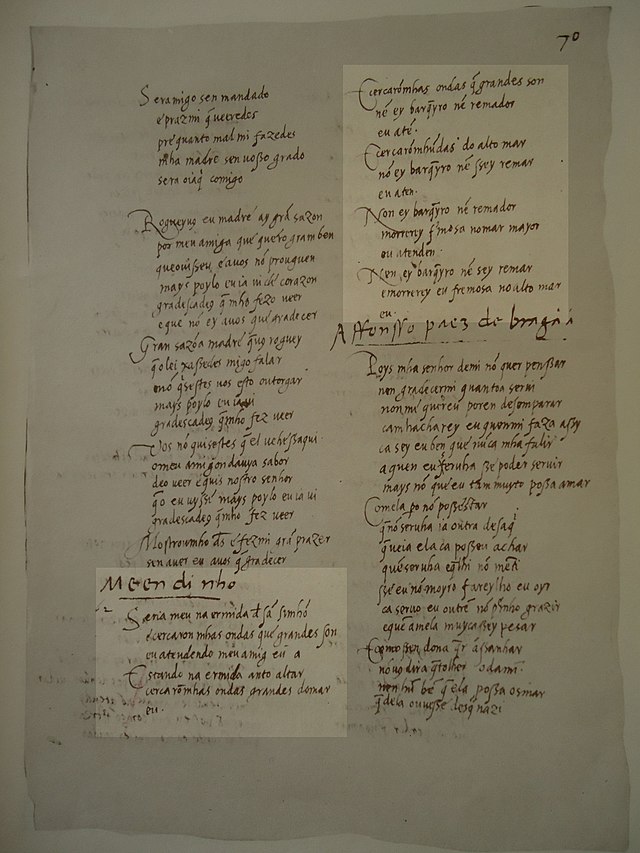 70
Seramigo sen mandado
e prazmi que
per quanto mal mi fazedes
mha madre sen uosso grado
sera comigo
Rogueyuꝯ eu madre ay grã sazon
por meu amigo que quero gram ben
que e auos nõ prouguen
mays poylo eu ia ui cõ corazon
gradescadeꝯ q̃ mho fezo ueer
e que nõ ey auos que gradecer
Gran sazõ a madre q̃uꝯ roguey
q̃ o lei xassedes migo falar
e nõ uos esto outorgar
mays poylo eu ia ui
gradescadeꝯ q̃ mho fez ueer
Vos nõ quisestes q̃ el uehessaqui
o meu amigo dauya sabor
deo ueer e quis nostro senhor
q̃ o eu uysse mays poylo eu ia ui
gradescadeꝯ q̃ mho fez ueer
Mostroumho d̃s e fezmi grã prazer
sen auer eu auos q̃ gradecer
Meendinho
Seria meu na ermida d̃ sã simhõ
e cercaron mhas ondas que grandes son
eu atendendo meu amig eu a
Estando na ermida anto altar
Cercarõmhas ondas grandes do mar
eu.
Ecercarõmhas ondas q̃ grandes son
nẽ ey barq̃yro nẽ remador
eu atẽ.
Ecercarõmhũdas do alto mar
nõ ey barq̃yro nẽ ssey remar
eu aten.
Non ey barq̃yro nẽ remador
morrerey fmosa no mar mayor
eu atenden.
Nen ey barq̃yro nẽ sey remar
e morrerey eu fremosa no alto mar
eu.
Affonsso paez de bragaa
Poys mha senhor demi nõ quer penssar
nen gradecermi quanto a serui
non me querreu poren desemparar
ca mhacharey eu quenmi faza assy
ca sey eu ben que nũca mha falir
a quen eu serua sse poder seruir
mays nõ que eu tam muyto possa amar
Comela po nõ possestar
q̃ nõ serua ia outra desaq̃
queia ela ca posseu achar
que serua e q̃lhi nõ mẽti
sse eu nõ moyro fareylho eu oyr
ca seruo eu outrẽ nõ grazir
e que amela muyca ssey pesar
E como dona q̃r assanhar
nõ uo dira q̃ tolher odami
nen hũ bẽ q̃ ela possa osmar
q̃ dela ouuesse desq̃ nazi